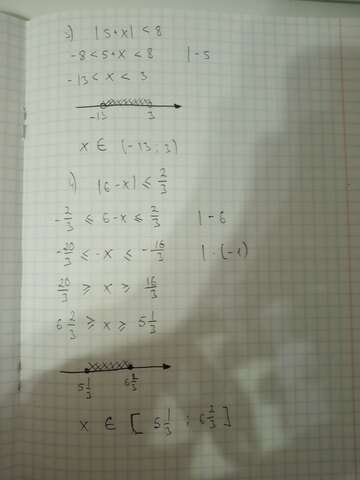 3) |5+x| < 8
-8 < 5+x < 8 |-5
-13 < x < 3
-13 3
x ∈ (-13 ; 3)
4) |6-x| ≤ 2/3
-2/3 ≤ 6-x ≤ 2/3 |-6
-20/3 ≤ -x ≤ -16/3 |·(-1)
20/3 ≥ x ≥ 16/3
6 2/3 ≥ x ≥ 5 1/3
5 1/3 6 2/3
x ∈ [5 1/3 ; 6 2/3]